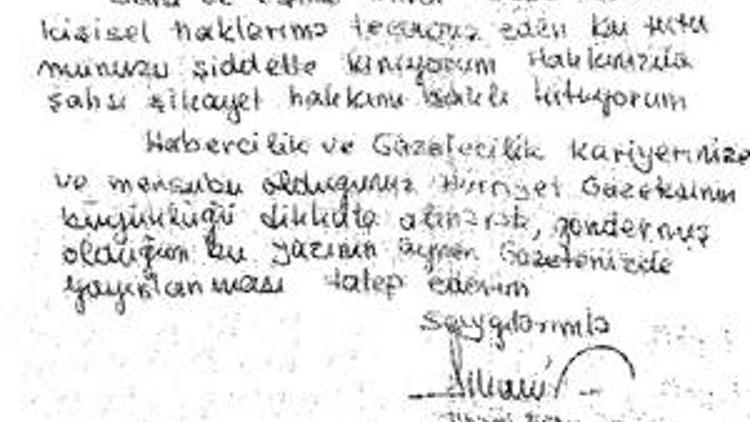 kişisel haklarıma tecavüz eden bu tutu
munuzu şiddetle kınıyorum Hakkınızda
şahsi şikayet hakkımı saklı tutuyorum
Habercilik ve Gazetecilik kariyerinize
ve mensubu olduğunuz Hürriyet Gazetesinin
büyüklüğü dikkate alınarak, göndermiş
olduğum bu yazının aynen Gazetenizde
yayınlanması talep ederim
Saygılarımla